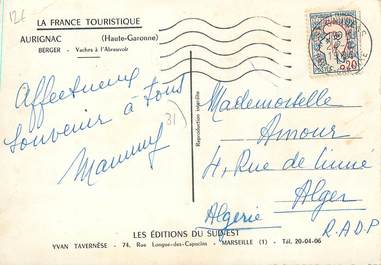 12E
LA FRANCE TOURISTIQUE
AURIGNAC (Haute-Garonne)
BERGER - Vaches à l'Abreuvoir
0,20
Affectueux
souvenir à tous
Mammy
31
Reproduction interdite
Mademoiselle
Amour
4, Rue de Linné
Alger
Algérie
R.A.D.P
LES ÉDITIONS DU SUD-EST
YVAN TAVERNÈSE - 74, Rue Longue-des-Capucins - MARSEILLE (1) - Tél. 20-04-06